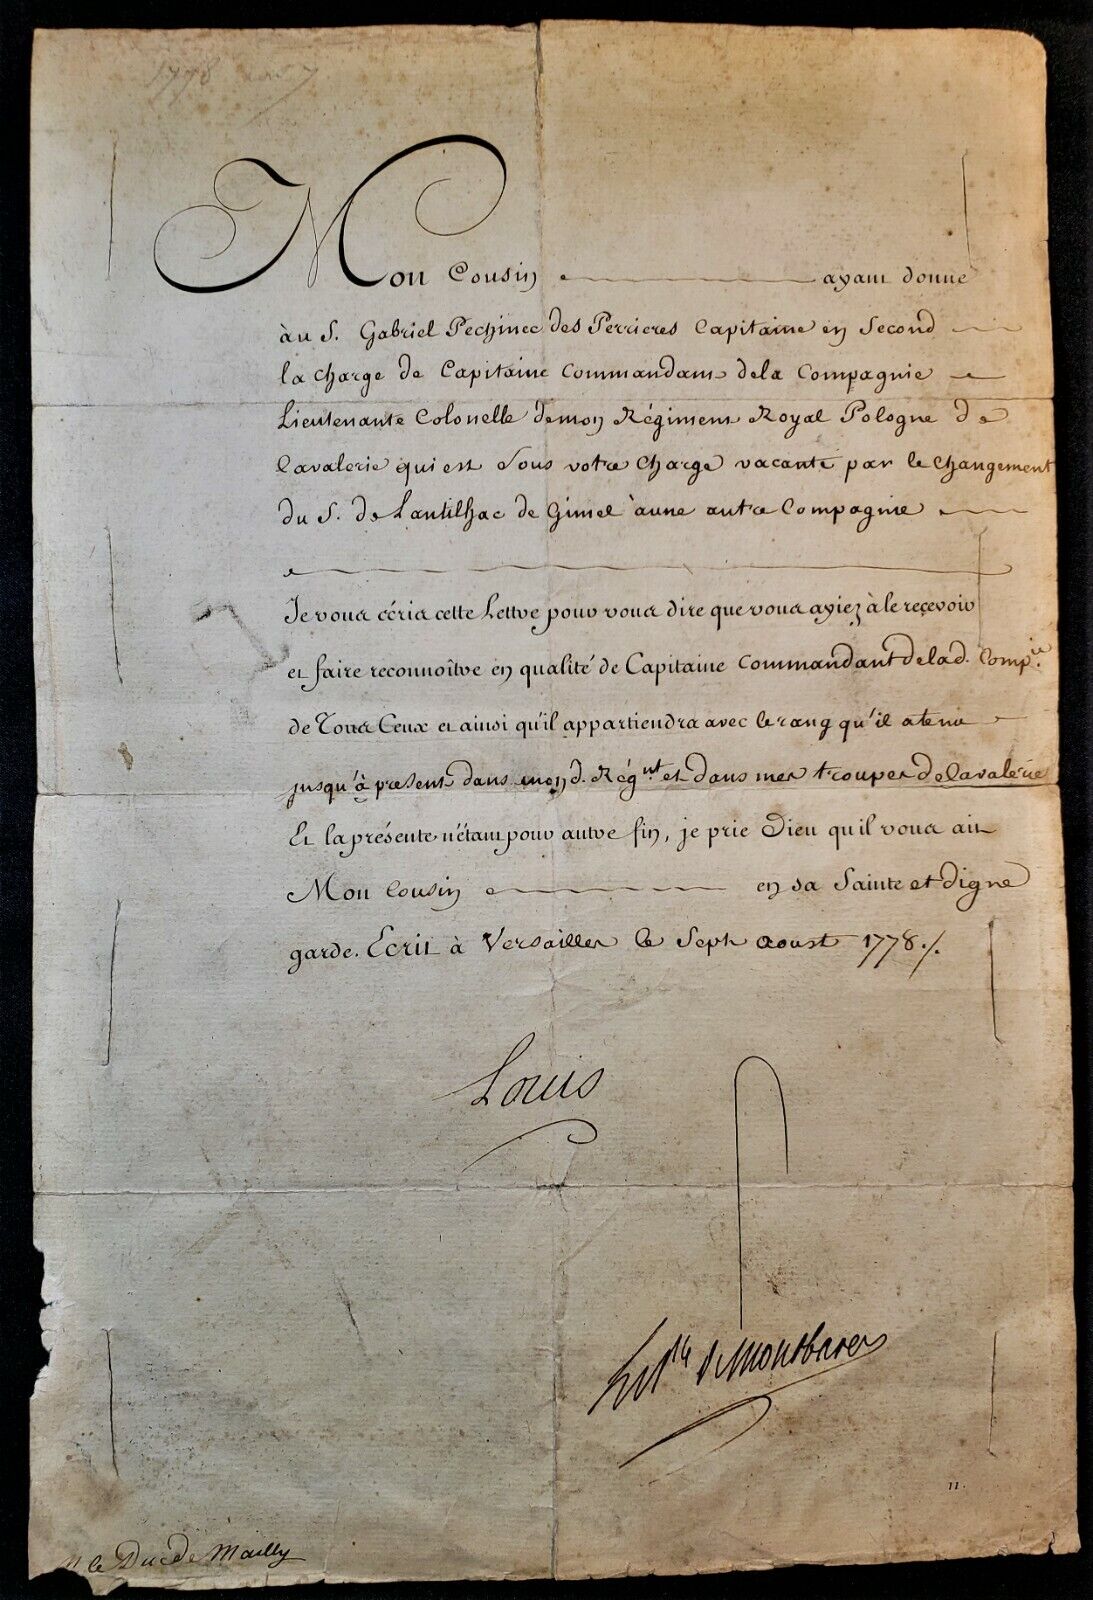 1778
7
Mon Cousin ayant donné
àu S. Gabriel Pechinec des Perrieres Capitaine en Second
la charge de Capitaine Commandant dela Compagnie
Lieutenante Colonelle demon Régiment Royal Pologne de
Cavalerie qui est sous votre charge vacante par le changement
du S. de Lantilhac de Gimel àune autre Compagnie
Je vous écris cette Lettre pour vous dire que vous ayiez à le reçevoir
et faire reconnoître en qualité de Capitaine Commandant delad. Comp.ie
de Tous Ceux et ainsi qu'il appartiendra avec le rang qu'il atenu
jusqu'à présent dans mond. Rég.nt et dans mes troupes de Cavalerie
Et la présente n'étant pour autre fin, je prie Dieu qu'il vous ait
Mon Cousin en sa Sainte et digne
garde. Ecrit à Versailles le Sept aoust 1778./.
Louis
le P.ce de Montbarey
11.
M le Duc de Mailly